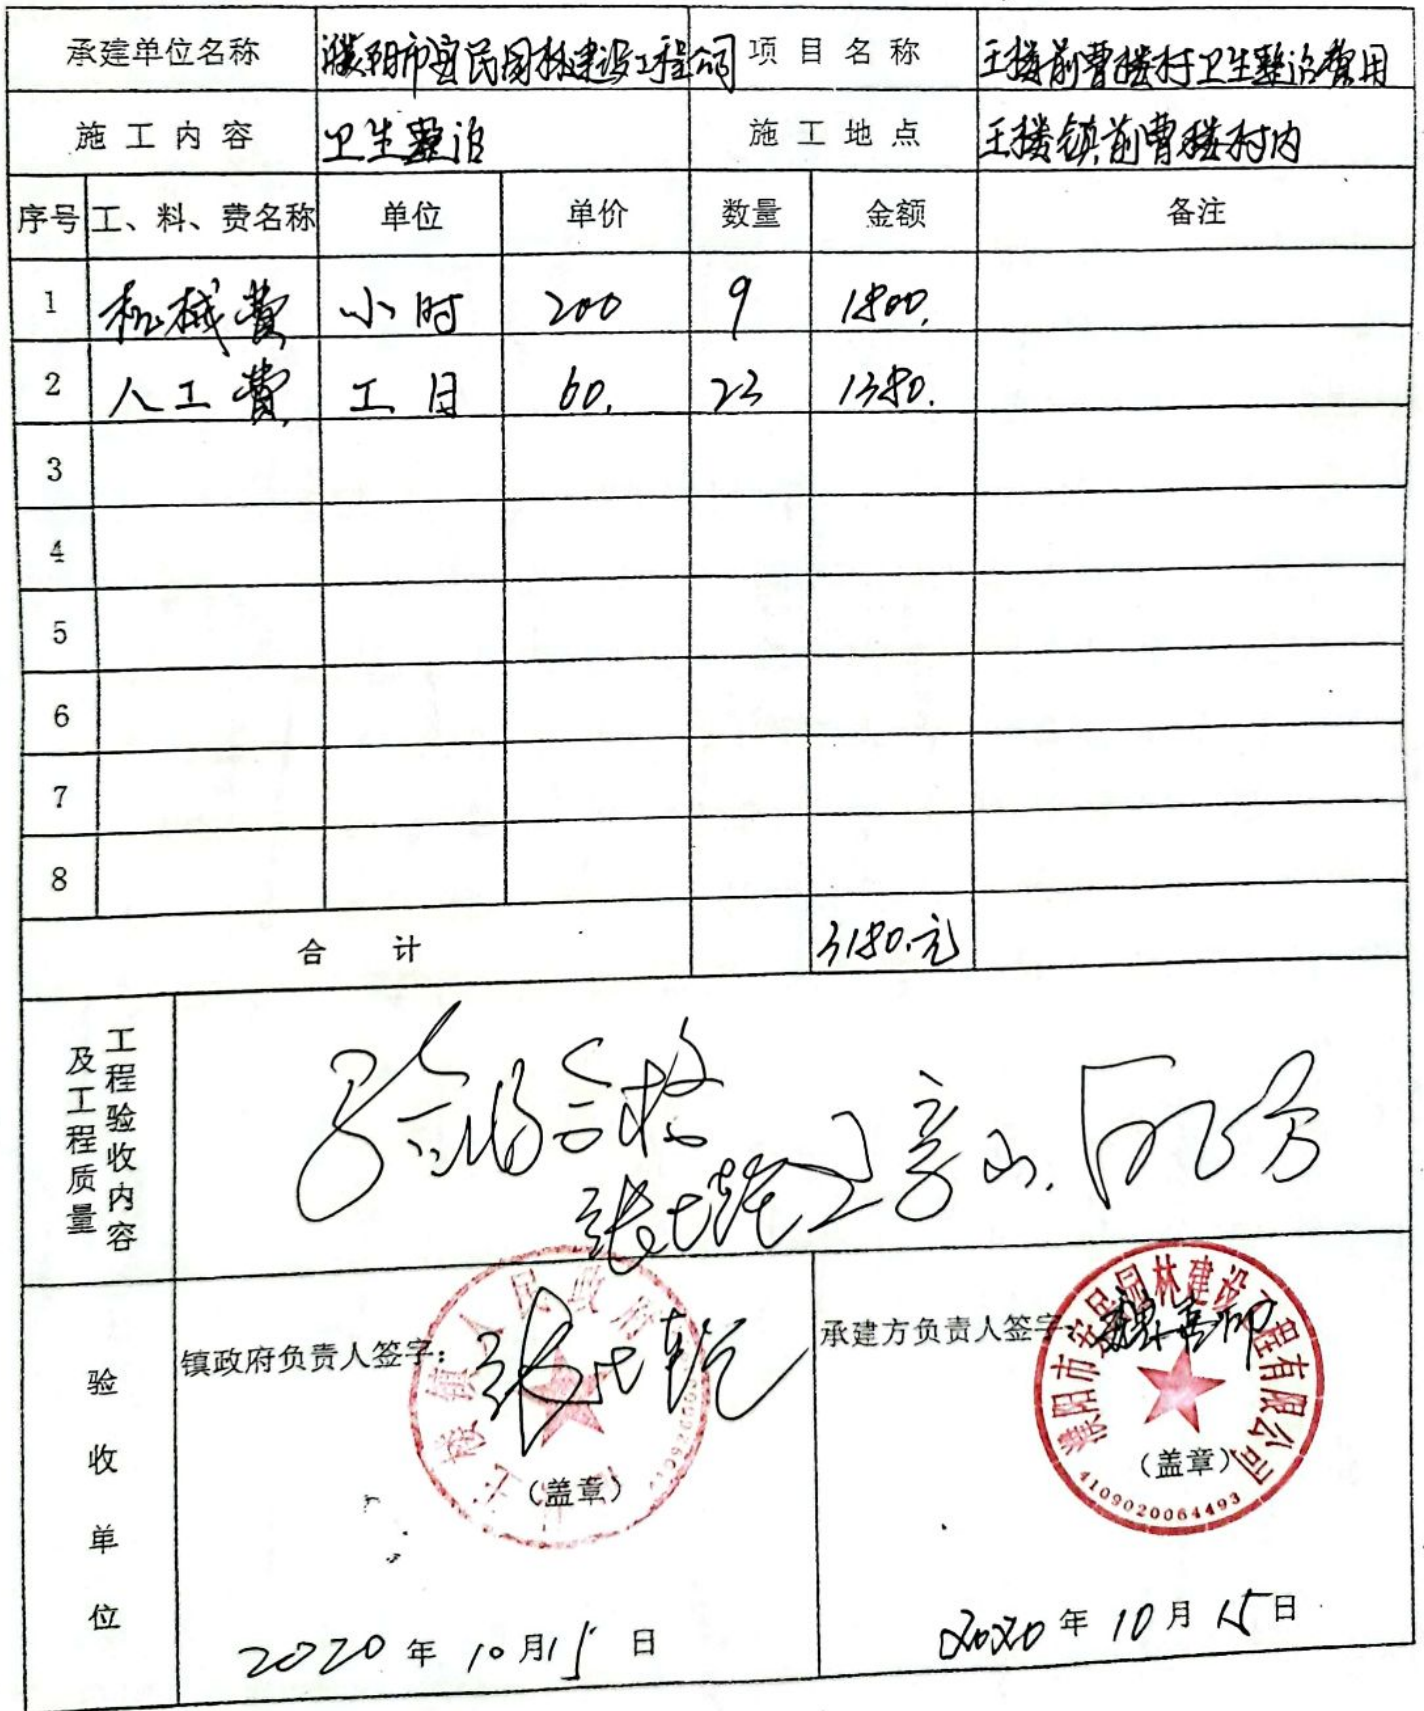 承建单位名称 濮阳市宜民园林建设工程公司 项目名称 王楼前曹楼村卫生整治费用
施工内容 卫生整治 施工地点 王楼镇前曹楼村内
序号 工、料、费名称 单位 单价 数量 金额 备注
1 机械费 小时 200 9 1800.
2 人工费 工日 60. 23 1380.
3
4
5
6
7
8
合计 3180.元
工程验收内容及工程质量
验收合格
验收单位
镇政府负责人签字:
(盖章)
2020年10月15日
承建方负责人签字
濮阳市宜民园林建设工程有限公司
(盖章)
4109020064493
2020年10月15日